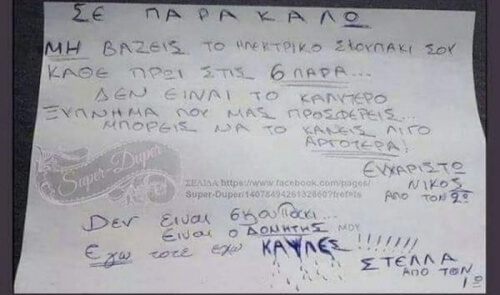 ΣΕ ΠΑΡΑΚΑΛΩ
ΜΗ ΒΑΖΕΙΣ ΤΟ ΗΛΕΚΤΡΙΚΟ ΣΚΟΥΠΑΚΙ ΣΟΥ
ΚΑΘΕ ΠΡΩΙ ΣΤΙΣ 6 ΠΑΡΑ...
ΔΕΝ ΕΙΝΑΙ ΤΟ ΚΑΛΥΤΕΡΟ
ΞΥΠΝΗΜΑ ΠΟΥ ΜΑΣ ΠΡΟΣΦΕΡΕΙΣ...
ΜΠΟΡΕΙΣ ΝΑ ΤΟ ΚΑΝΕΙΣ ΛΙΓΟ
ΑΡΓΟΤΕΡΑ!
ΕΥΧΑΡΙΣΤΩ
ΝΙΚΟΣ
ΑΠΟ ΤΟΝ 2º
Super-Duper
ΣΕΛΙΔΑ https://www.facebook.com/pages/
Super-Duper/1407849426132860?fref=ts
Δεν ειναι σκουπακι...
Ειναι ο ΔΟΝΗΤΗΣ μου
Εγω τοτε εχω ΚΑΥΛΕΣ!!!!!!!
ΣΤΕΛΛΑ
ΑΠΟ ΤΟΝ
1º